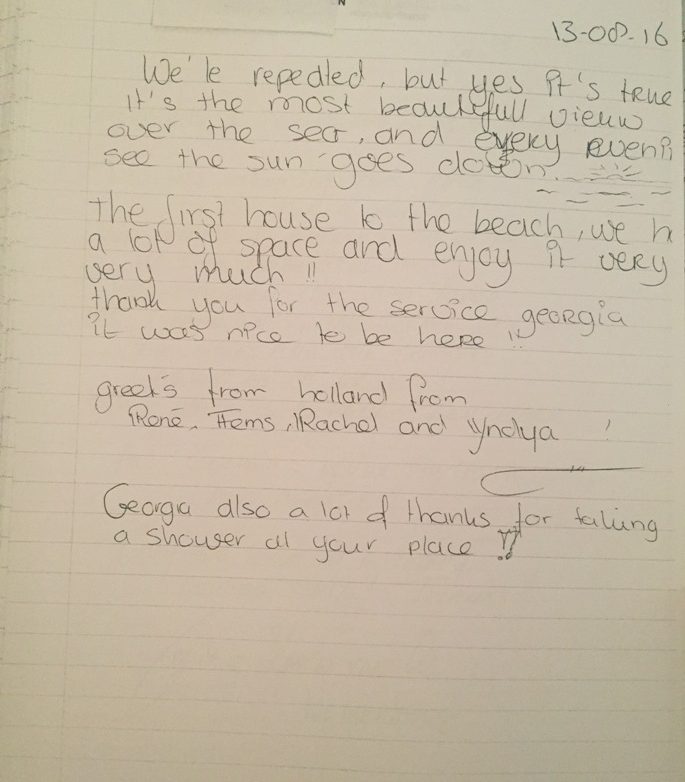 13-08-16
We'le repedted, but yes it's true
it's the most beautefull vieuw
over the sea, and every eveni
see the sun goes down.
the first house to the beach, we h
a lot of space and enjoy it very
very much !!
thank you for the service georgia
it was nice to be here !!
greets from holland from
René, Hems, Rachel and Yndya !
Georgia also a lot of thanks for taking
a shower at your place !!